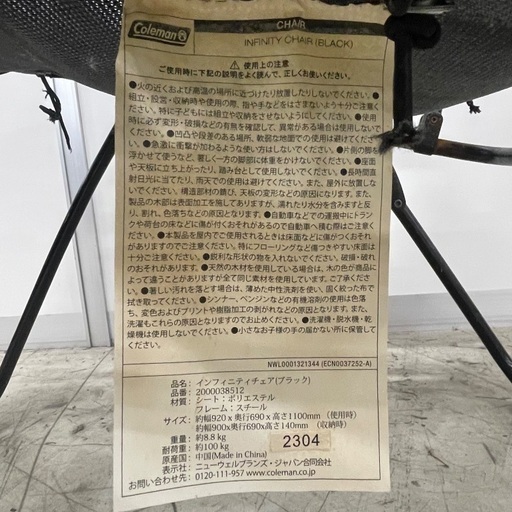 Coleman
CHAIR
INFINITY CHAIR (BLACK)
⚠ 使用上の注意
ご使用時に下記の説明をよく読んで、正しくお使いください。
●火の近くおよび高温の場所に近づけたり放置したりしないでください。●
組立・設営・収納時や使用の際、指や手などをはさまないよう十分ご注意く
ださい。特に子どもには組立や収納をさせないようにしてください。●使用
時に必ず変形・破損などの有無を確認して、異常がある場合は使用しないで
ください。●凹凸や段差のある場所、軟弱な地面での使用は避けてくださ
い。●急激に衝撃が加わるような使い方はしないでください。●片側の脚を
浮かせて使うなど、著しく一方の脚部に体重をかけないでください。●座面
や天板に立ち上がったり、踏み台として使用しないでください。●長時間直
射日光に当てたり、雨天での使用は避けてください。また、屋外に放置しな
いでください。構造部材の錆び、天板の変形などの原因になります。また、
製品の木部は表面加工を施してありますが、濡れたり水分を含みますと反
り、割れ、色落ちなどの原因となります。●自動車などでの運搬中にトラン
クや荷台の床などに傷が付くおそれがあるので自動車へ積む際はご注意く
ださい。●本製品を屋内でご使用されるときは床面などに傷がつくおそれ
がありますのでご注意ください。特にフローリングなど傷つきやすい床面は
十分ご注意ください。●鋭利な形状の物を入れないでください。破損・破れ
のおそれがあります。●天然の木材を使用している場合は、木の色が商品に
よって違うことがありますが全て同じ素材を使用しています。ご了承くださ
い。●著しい汚れを落とす場合は、薄めた中性洗剤を使い、固く絞った布で
拭き取ってください。●シンナー、ベンジンなどの有機溶剤の使用は色落
ち、変色およびプリントや樹脂加工の剥がれなどの原因となります。また、
洗濯もこれらの原因となりますのでお止めください。●洗濯機・脱水機・乾
燥機は使用しないでください。●小さなお子様の手の届かない所に保管して
ください。
NWL0001321344 (ECN0037252-A)
品名: インフィニティチェア(ブラック)
品番: 2000038512
材質: シート：ポリエステル
フレーム：スチール
サイズ: 約幅920ｘ奥行690ｘ高さ1100mm （使用時）
約幅900x奥行690x高さ140mm （収納時）
重量: 約8.8 kg
耐荷重: 約100 kg
2304
原産国: 中国(Made in China)
表示社: ニューウェルブランズ・ジャパン合同会社
お問い合わせ先: 0120-111-957 www.coleman.co.jp